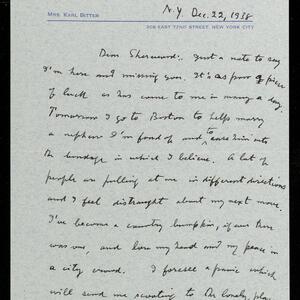 MRS. KARL BITTER
N.Y. Dec. 22, 1938
208 EAST 72ND STREET, NEW YORK CITY
Dear Sherwood: Just a note to say
I'm here and missing you. It's as poor a piece
of luck as has come to me in many a day.
Tomorrow I go to Boston to help marry
a nephew I'm fond of and to ease him into
the bondage in which I believe. A lot of
people are pulling at me in different directions
and I feel distraught about my next move.
I've become a country bumpkin, if ever there
was one, and lose my head and my peace in
a city crowd. I foresee a panic which
will send me scooting to the lonely plai